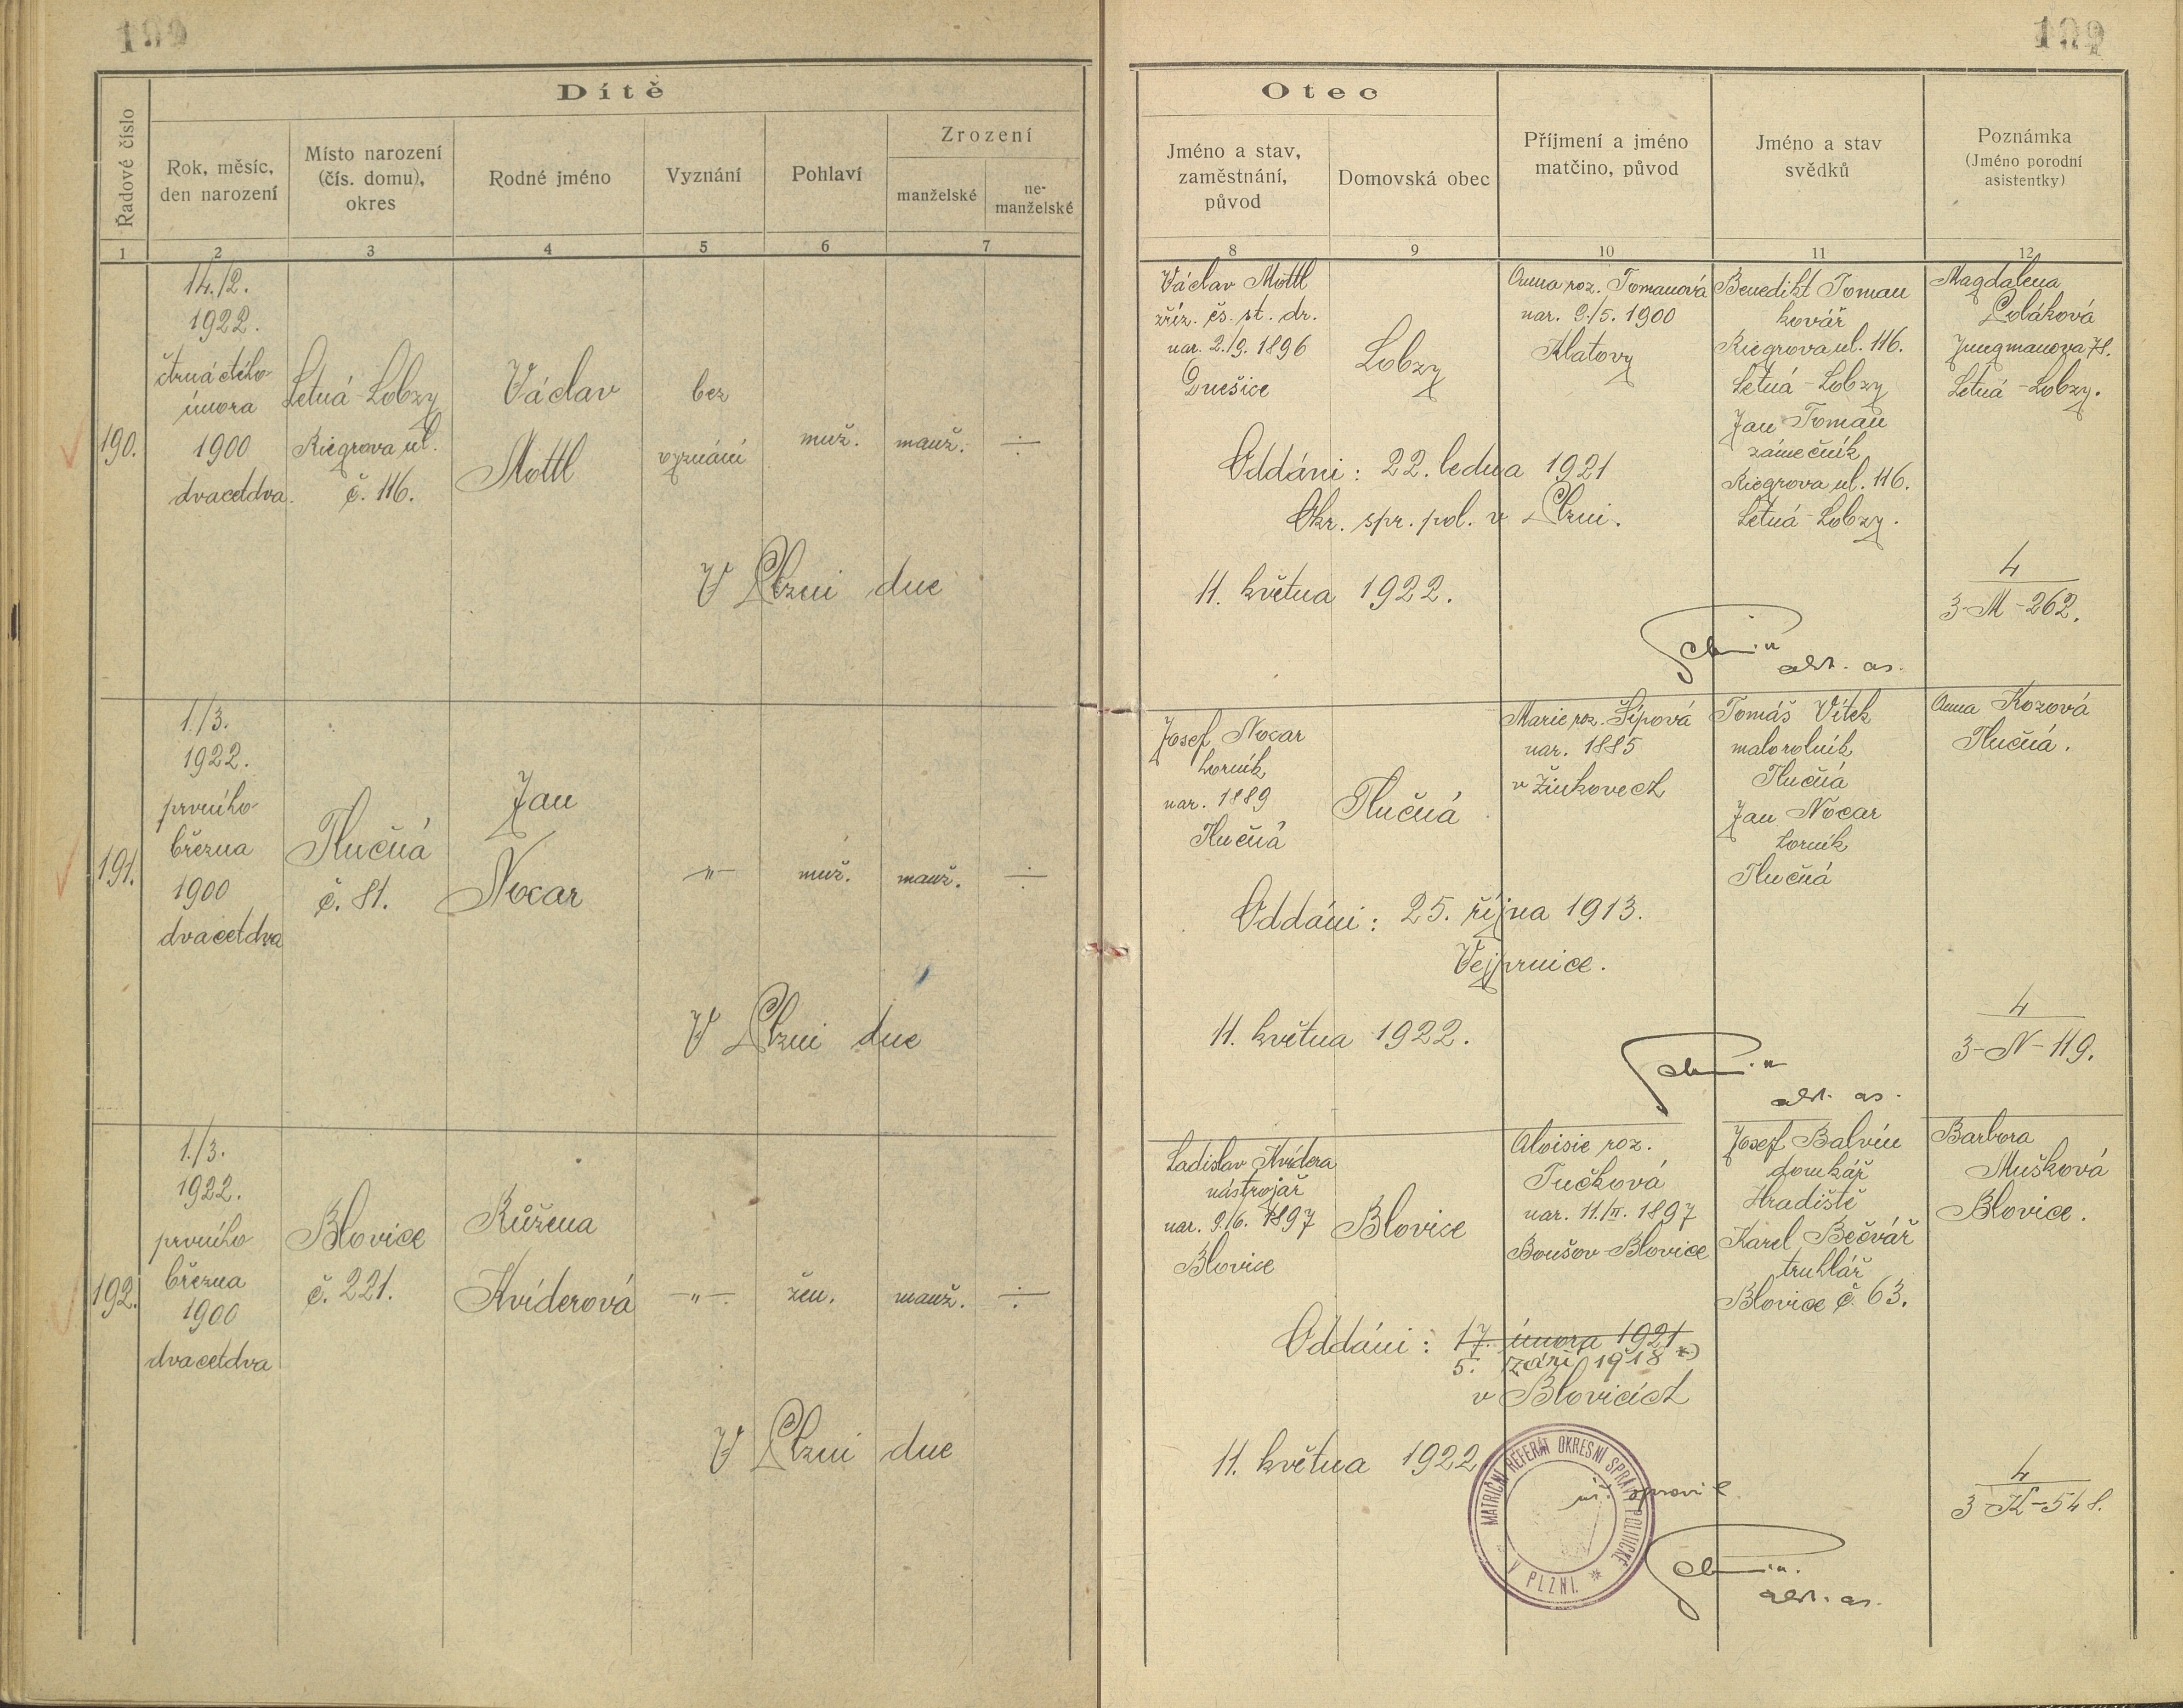 Dítě
Řadové číslo
Rok, měsíc,
den narození
Místo narození
(čís. domu),
okres
Rodné jméno
Vyznání
Pohlaví
Zrození
manželské
ne-
manželské
1 2 3 4 5 6 7
190.
14./2.
1922.
čtrnáctého
února
1900
dvacetdva.
Letná-Lobzy
Riegrova ul.
č. 116.
Václav
Mottl
bez
vyznání
muž.
manž.
÷
V Plzni dne
191.
1./3.
1922.
prvního
března
1900
dvacetdva
Tlučná
č. 81.
Jan
Nocar
-"-
muž.
manž.
÷
V Plzni dne
192.
1./3.
1922.
prvního
března
1900
dvacetdva
Blovice
č. 221.
Růžena
Kviderová
-"-
žen.
manž.
÷
V Plzni dne
Otec
Jméno a stav,
zaměstnání,
původ
Domovská obec
Příjmení a jméno
matčino, původ
Jméno a stav
svědků
Poznámka
(Jméno porodní
asistentky)
8 9 10 11 12
Václav Mottl
zříz. čs. st. dr.
nar. 2./9. 1896
Dnešice
Lobzy
Anna roz. Tomanová
nar. 9./5. 1900
Klatovy
Benedikt Toman
kovář
Riegrova ul. 116.
Letná-Lobzy
Jan Toman
zámečník
Riegrova ul. 116.
Letná-Lobzy.
Magdalena
Poláková
Jungmanova 78.
Letná-Lobzy.
Oddáni: 22. ledna 1921
Okr. spr. pol. v Plzni.
11. května 1922.
4
3-M-262.
Josef Nocar
horník
nar. 1889
Tlučná
Tlučná
Marie roz. Šípová
nar. 1885
v Žinkovech
Tomáš Vítek
malorolník
Tlučná
Jan Nocar
horník
Tlučná
Anna Kozová
Tlučná.
Oddáni: 25. října 1913.
Vejprnice.
11. května 1922.
4
3-N-119.
Ladislav Kvidera
nástrojař
nar. 9./6. 1897
Blovice
Blovice
Aloisie roz.
Tučková
nar. 11./II. 1897
Boušov-Blovice
Josef Balvín
domkář
Hradiště
Karel Bečvář
truhlář
Blovice č. 63.
Barbora
Mušková
Blovice.
Oddáni: 17. února 1921
5. září 1918 *)
v Blovicích
11. května 1922
MATRIČNÍ REFERÁT OKRESNÍ SPRÁVY POLITICKÉ
V PLZNI. *
opravil
4
3-K-548.